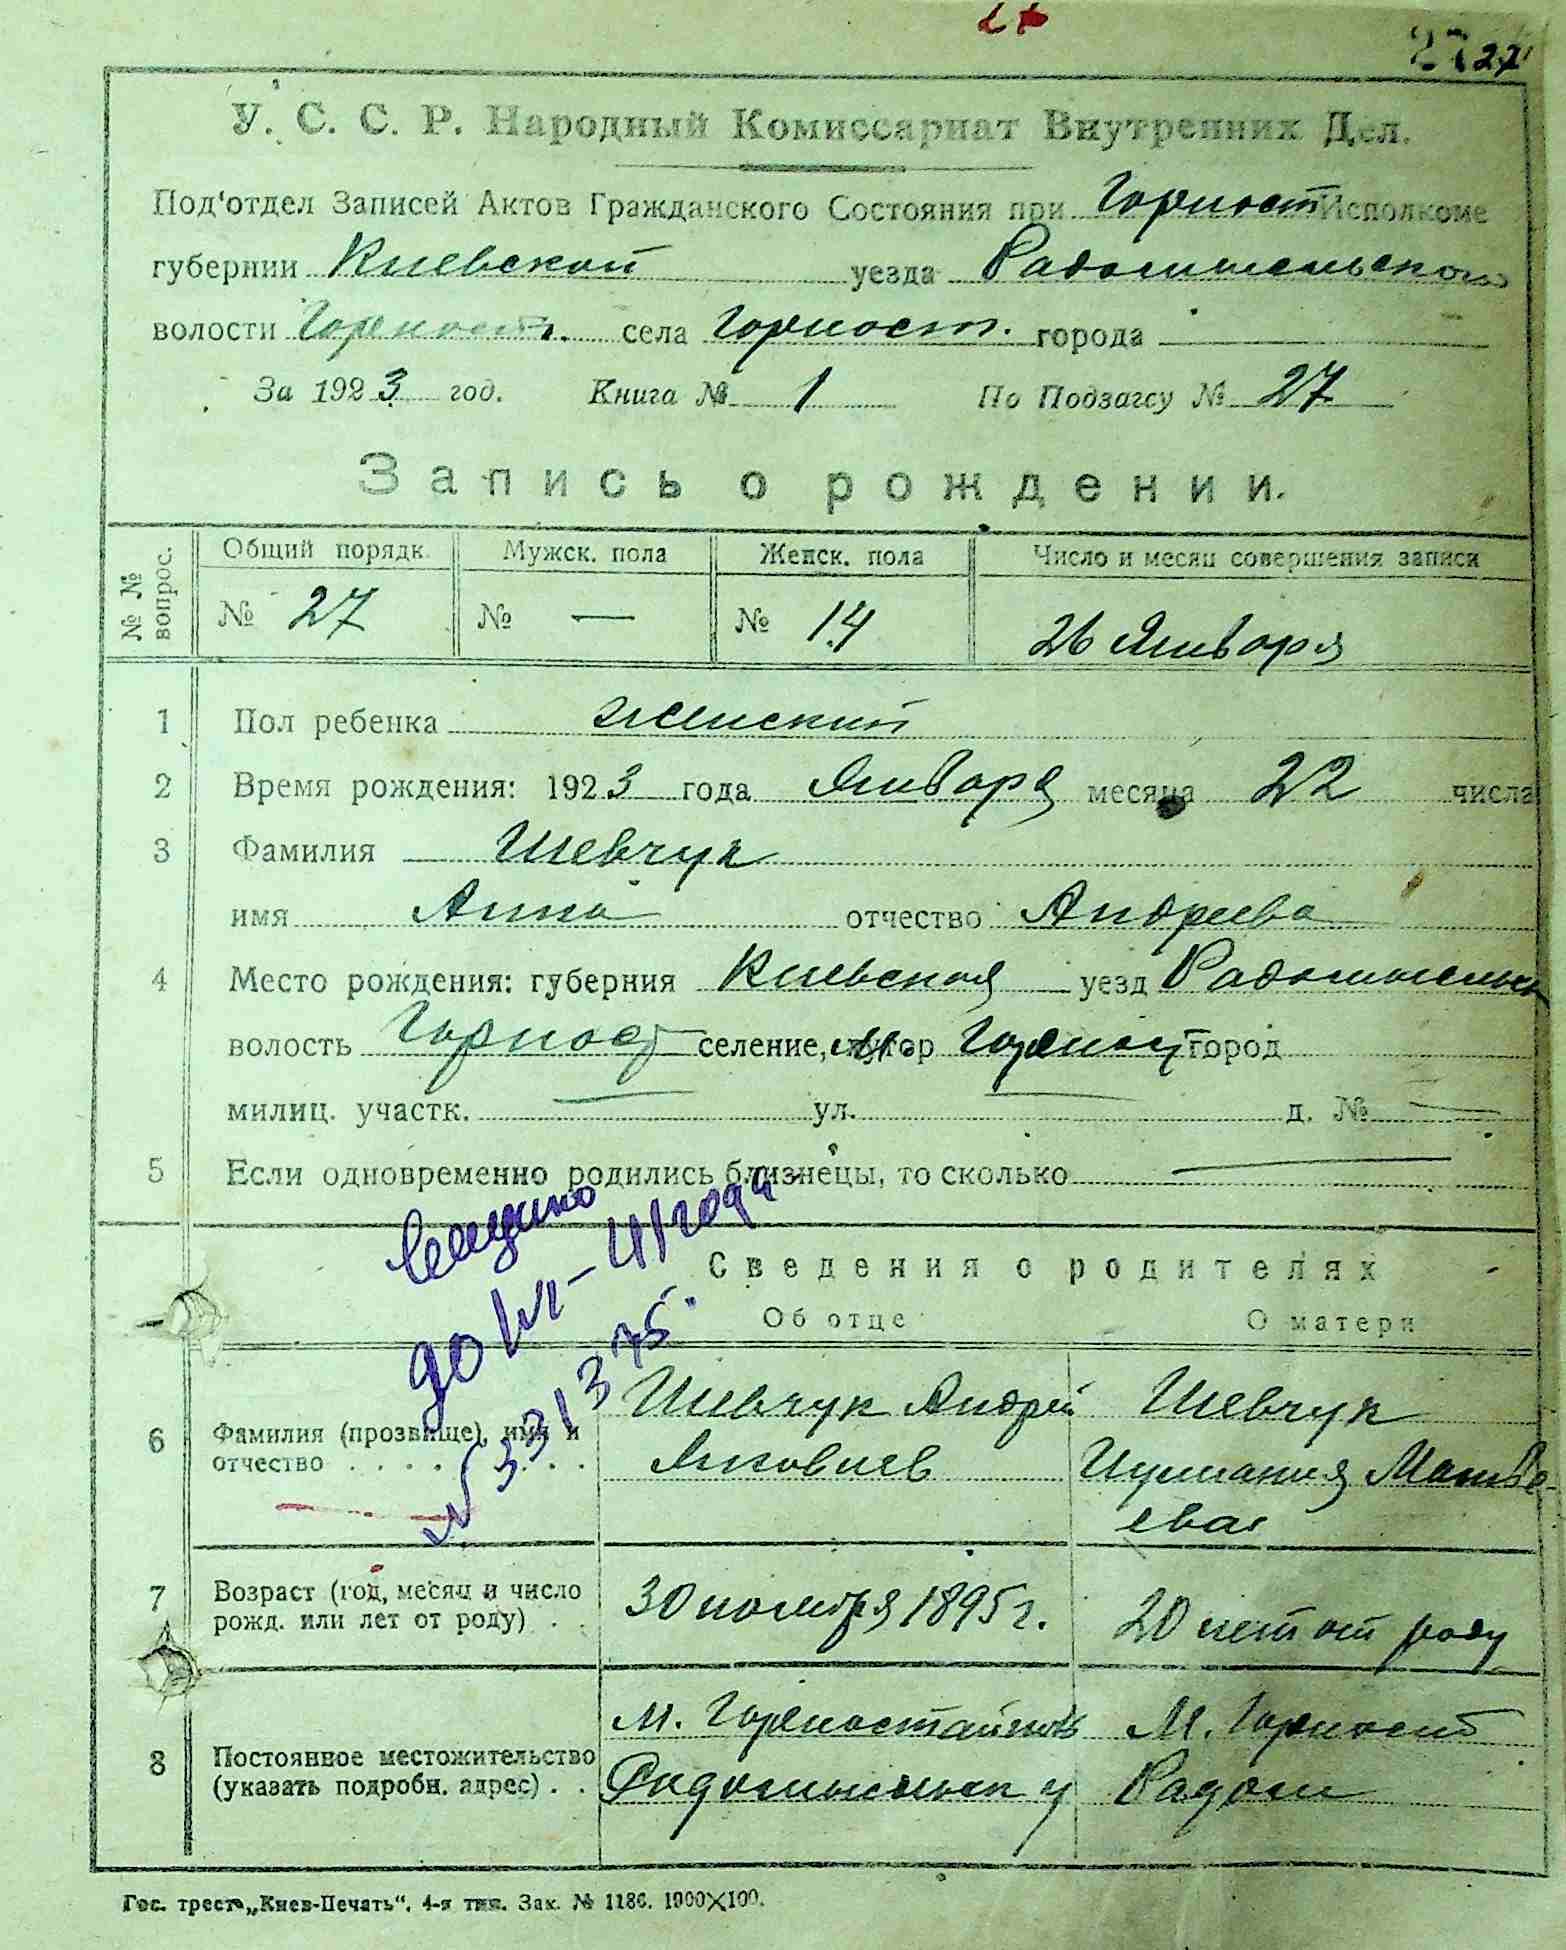 27
У. С. С. Р. Народный Комиссариат Внутренних Дел.
Под'отдел Записей Актов Гражданского Состояния при Горност Исполкоме
губернии Киевской уезда Радомысельского
волости Горност. села Горност. города
За 1923 год. Книга № 1 По Подзагсу № 27
Запись о рождении.
№ № вопрос. Общий порядк. Мужск. пола Женск. пола Число и месяц совершения записи
№ 27 № — № 14 26 Января
1 Пол ребенка женский
2 Время рождения: 1923 года Января месяца 22 числа
3 Фамилия Шевчук
имя Анна отчество Андреева
4 Место рождения: губерния Киевская уезд Радомысельск
волость Горност селение, хутор м. Горност город
милиц. участк. — ул. — д. № —
5 Если одновременно родились близнецы, то сколько —
Сведения о родителях
Об отце О матери
6 Фамилия (прозвище), имя и отчество . . . . . .
Шевчук Андрей
Яковлев
Шевчук
Матве-
ева
№ 331375
7 Возраст (год, месяц и число рожд. или лет от роду) . .
30 ноября 1895 г. 20 лет от роду
8 Постоянное местожительство (указать подробн. адрес) . .
М. Горностайполь М. Горност
Радомысельск у Радом
Гос. трест „Киев-Печать“. 4-я тип. Зак. № 1186. 1000×100.